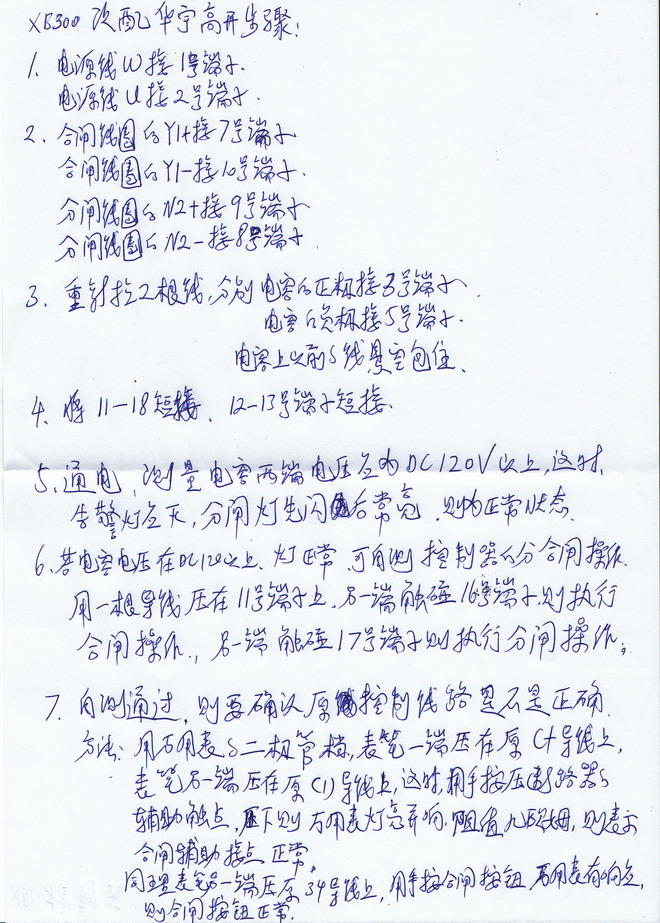 XB300 改配华宇高开步骤:
1. 电源线W接1号端子.
电源线U接2号端子.
2. 合闸线圈的Y1+接7号端子
合闸线圈的Y1-接10号端子.
分闸线圈的N2+接9号端子
分闸线圈的N2-接8号端子.
3. 重新拉2根线,分别电容的正极接3号端子
电容的负极接5号端子.
电容上以前的线悬空包住.
4. 将11-18短接、12-13号端子短接.
5. 通电,测量电容两端电压应为DC120V以上,这时,
告警灯应灭,分闸灯先闪后常亮.则为正常状态.
6. 若电容电压在DC120以上、灯正常,可自测控制器的分合闸操作.
用一根导线压在11号端子上,另一端触碰16号端子则执行
合闸操作.,另一端触碰17号端子则执行分闸操作;
7. 自测通过,则要确认原控制线路是否是正确.
方法:用万用表的二极管档,表笔一端压在原C+导线上,
表笔另一端压在原C1)导线上,这时,用手按压断路器的
辅助触点,压下则万用表灯亮并响.阻值几欧姆,则表示
合闸辅助接点正常.
同理表笔另一端压原34导线上,用手按合闸按钮,万用表有响应,
则合闸按钮正常.